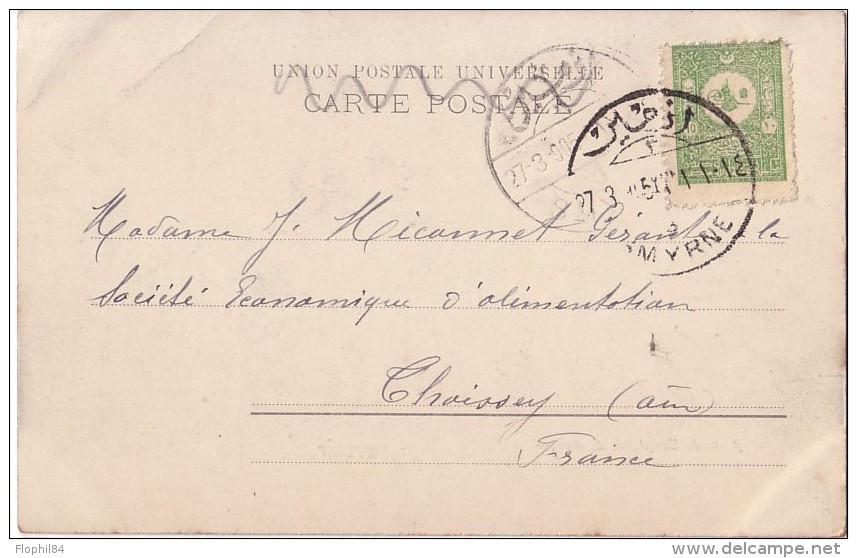 UNION POSTALE UNIVERSELLE
CARTE POSTALE
27-3-905
ازمير
27 3
SMYRNE
Madame J. Miconnet Gérante de la
Société Economique d'alimentation
Thoissey (ain)
France
Flophil84
delcampe.net